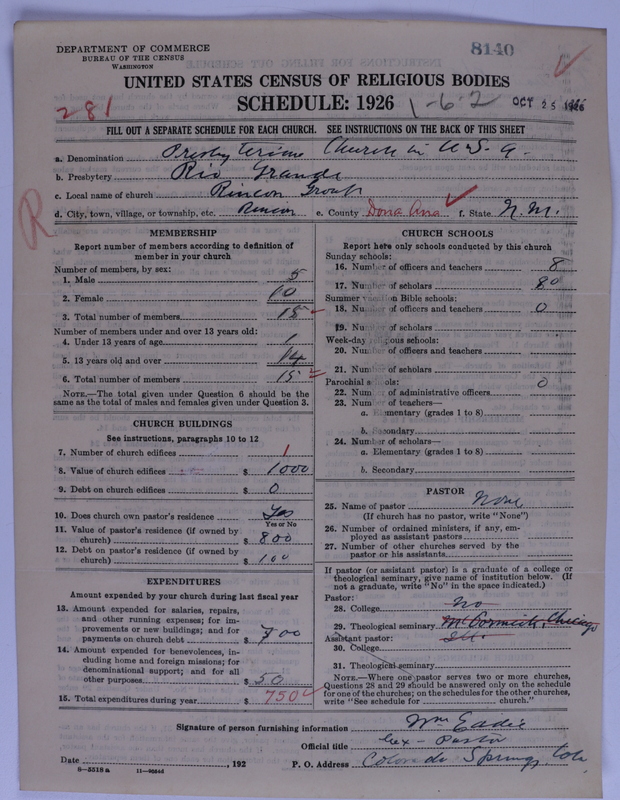 DEPARTMENT OF COMMERCE
BUREAU OF THE CENSUS
WASHINGTON
8140
UNITED STATES CENSUS OF RELIGIOUS BODIES
281
SCHEDULE: 1926
1-6-2
OCT 25 1926
FILL OUT A SEPARATE SCHEDULE FOR EACH CHURCH. SEE INSTRUCTIONS ON THE BACK OF THIS SHEET
a. Denomination Presbyterian Church in U.S.A.
b. Presbytery Rio Grande
c. Local name of church Rincon Group
d. City, town, village, or township, etc. Rincon e. County Dona Ana f. State N.M.
R
MEMBERSHIP
Report number of members according to definition of
member in your church
Number of members, by sex:
1. Male 5
2. Female 10
3. Total number of members 15
Number of members under and over 13 years old:
4. Under 13 years of age 1
5. 13 years old and over 14
6. Total number of members 15
NOTE.—The total given under Question 6 should be the
same as the total of males and females given under Question 3.
CHURCH BUILDINGS
See instructions, paragraphs 10 to 12
7. Number of church edifices 1
8. Value of church edifices $ 1000
9. Debt on church edifices $ 0
10. Does church own pastor's residence Yes
Yes or No
11. Value of pastor's residence (if owned by
church) $ 800
12. Debt on pastor's residence (if owned by
church) $ 100
EXPENDITURES
Amount expended by your church during last fiscal year
13. Amount expended for salaries, repairs,
and other running expenses; for im-
provements or new buildings; and for
payments on church debt $ 700
14. Amount expended for benevolences, in-
cluding home and foreign missions; for
denominational support; and for all
other purposes $ 50
15. Total expenditures during year $ 750
CHURCH SCHOOLS
Report here only schools conducted by this church
Sunday schools:
16. Number of officers and teachers 8
17. Number of scholars 80
Summer vacation Bible schools:
18. Number of officers and teachers 0
19. Number of scholars
Week-day religious schools:
20. Number of officers and teachers
21. Number of scholars
Parochial schools: 0
22. Number of administrative officers
23. Number of teachers—
a. Elementary (grades 1 to 8)
b. Secondary
24. Number of scholars—
a. Elementary (grades 1 to 8)
b. Secondary
PASTOR
25. Name of pastor None
(If church has no pastor, write "None")
26. Number of ordained ministers, if any, em-
ployed as assistant pastors
27. Number of other churches served by the
pastor or his assistants
If pastor (or assistant pastor) is a graduate of a college or
theological seminary, give name of institution below. (If
not a graduate, write "No" in the space indicated.)
Pastor:
28. College No
29. Theological seminary McCormick Chicago
Assistant pastor: Ill.
30. College
31. Theological seminary
NOTE.—Where one pastor serves two or more churches,
Questions 28 and 29 should be answered only on the schedule
for one of the churches; on the schedules for the other churches,
write "See Schedule for church."
Signature of person furnishing information Wm Eadie
Official title Ex-Pastor
Date , 192 P. O. Address Colorado Springs Colo
8—5518 a 11—9054d